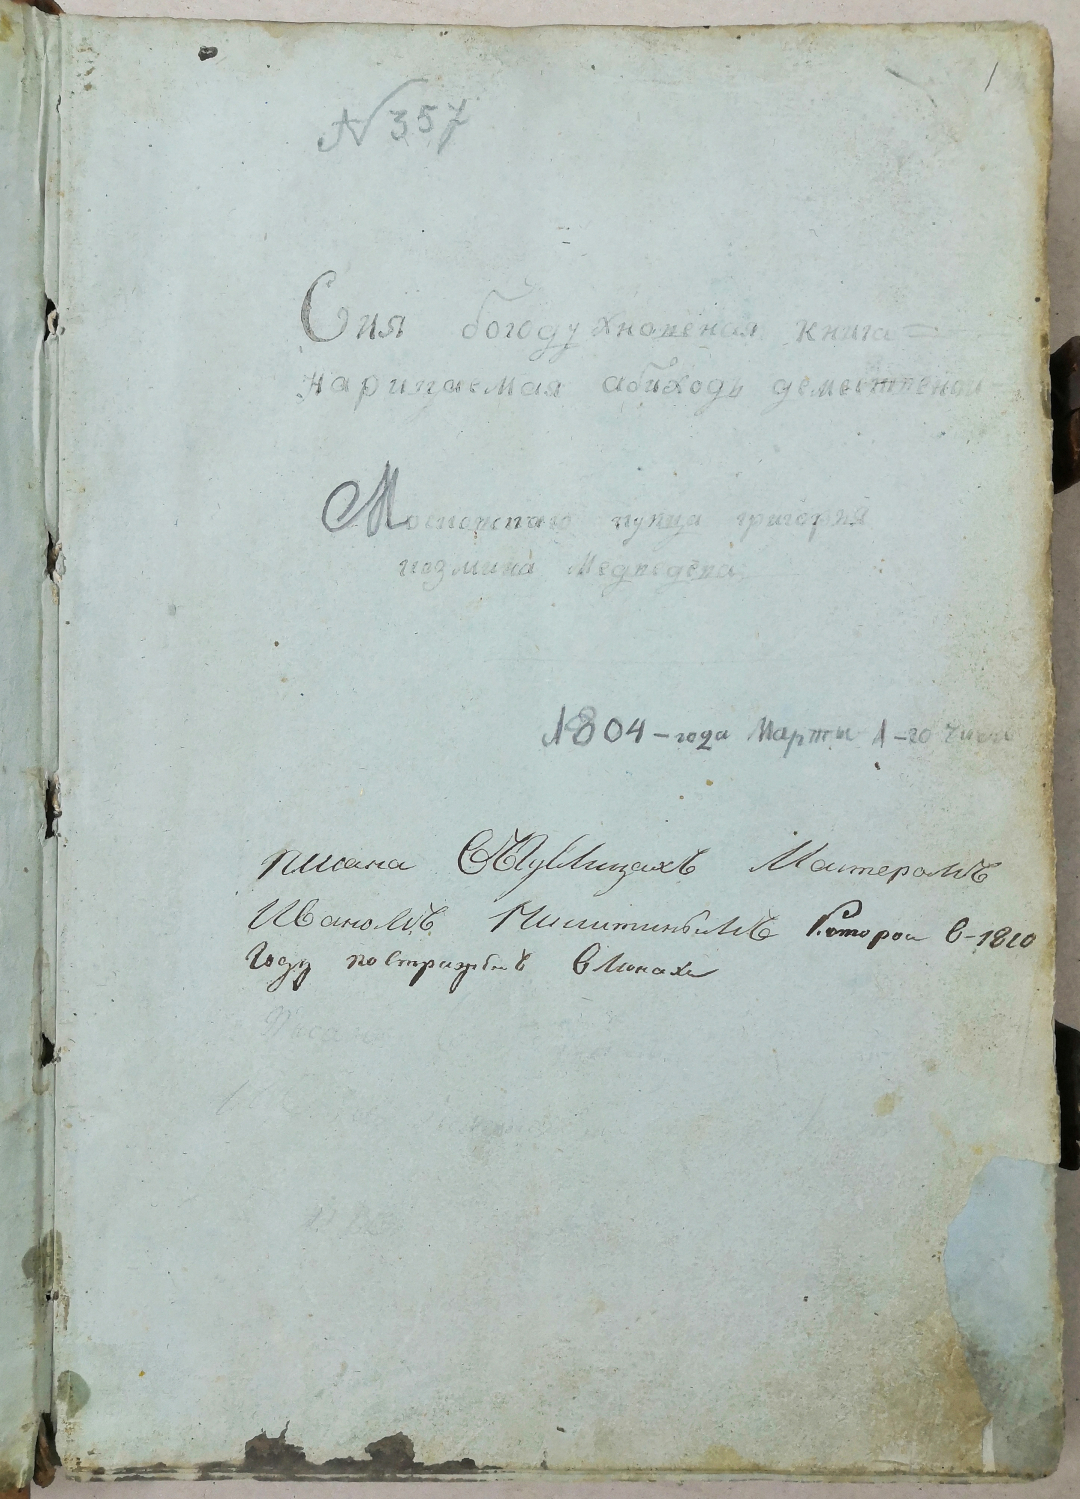 № 357
1
Сия богодухновеная книга
нарицаемая абиходъ демественои
Московскаго купца григория
козмина Медведева
1804 - года Марты 1 - го Числа
писана Мастеромъ
Иваномъ Которои в - 1810
Году пострижынъ в Монахи